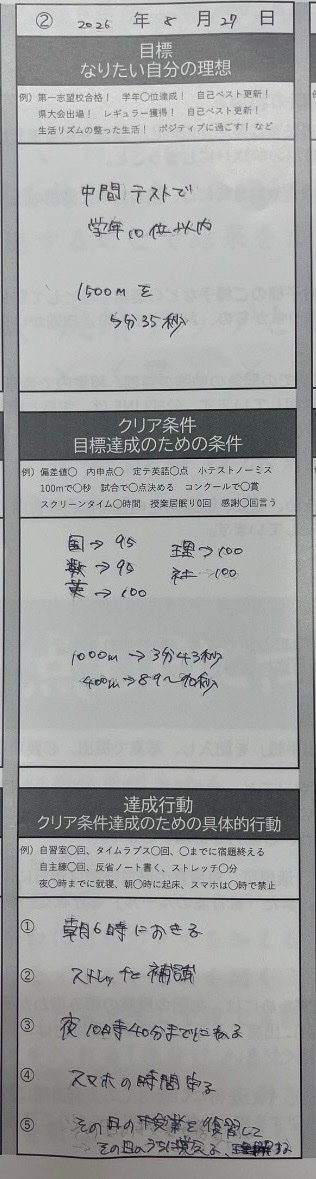 ② 2026 年 8 月 27 日
目標
なりたい自分の理想
例）第一志望校合格！ 学年○位達成！ 自己ベスト更新！
県大会出場！ レギュラー獲得！ 自己ベスト更新！
生活リズムの整った生活！ ポジティブに過ごす！ など
中間テストで
学年10位以内
1500mを
5分35秒
クリア条件
目標達成のための条件
例）偏差値○ 内申点○ 定テ英語○点 小テストノーミス
100mで○秒 試合で○点決める コンクールで○賞
スクリーンタイム○時間 授業居眠り0回 感謝○回言う
国→95 理→100
数→90 社→100
英→100
1000m→3分43秒
400m→89〜90秒
達成行動
クリア条件達成のための具体的行動
例）自習室○回、タイムラプス○回、○までに宿題終える
自主練○回、反省ノート書く、ストレッチ○分
夜○時までに就寝、朝○時に起床、スマホは○時で禁止
① 朝6時におきる
② ストレッチと補講
③ 夜10時40分までにねる
④ スマホの時間守る
⑤ その日の授業を復習して
その日のうちに覚える、理解する